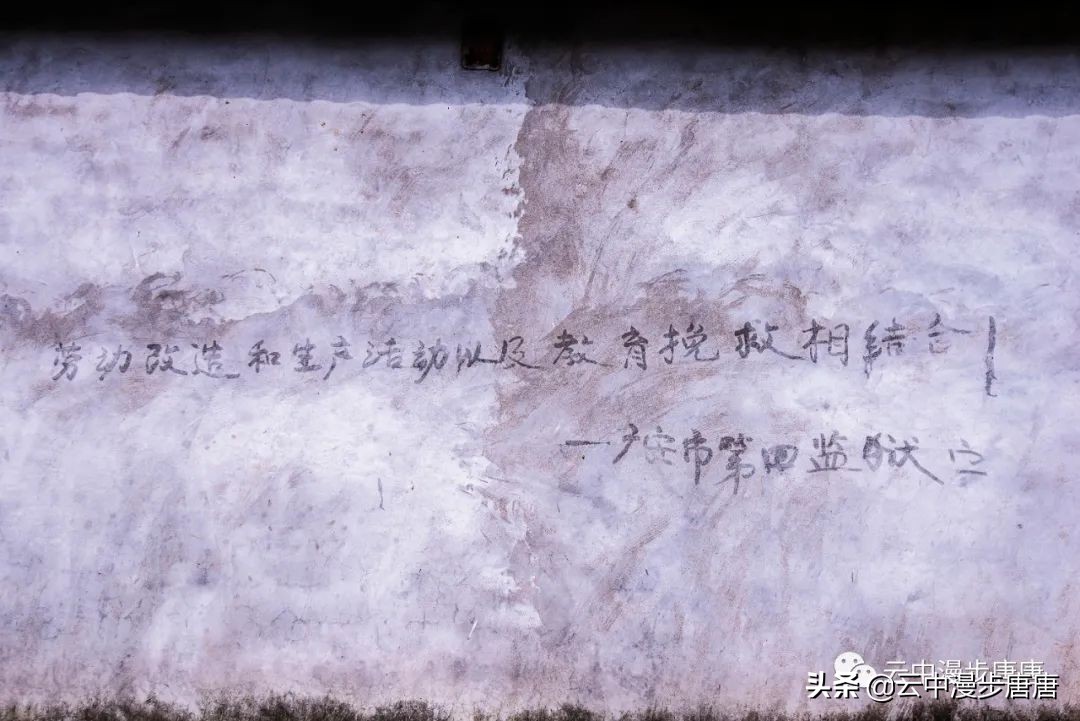 劳动改造和生产活动以及教育挽救相结合!
一广安市第四监狱宣
云中漫步唐唐
头条 @云中漫步唐唐